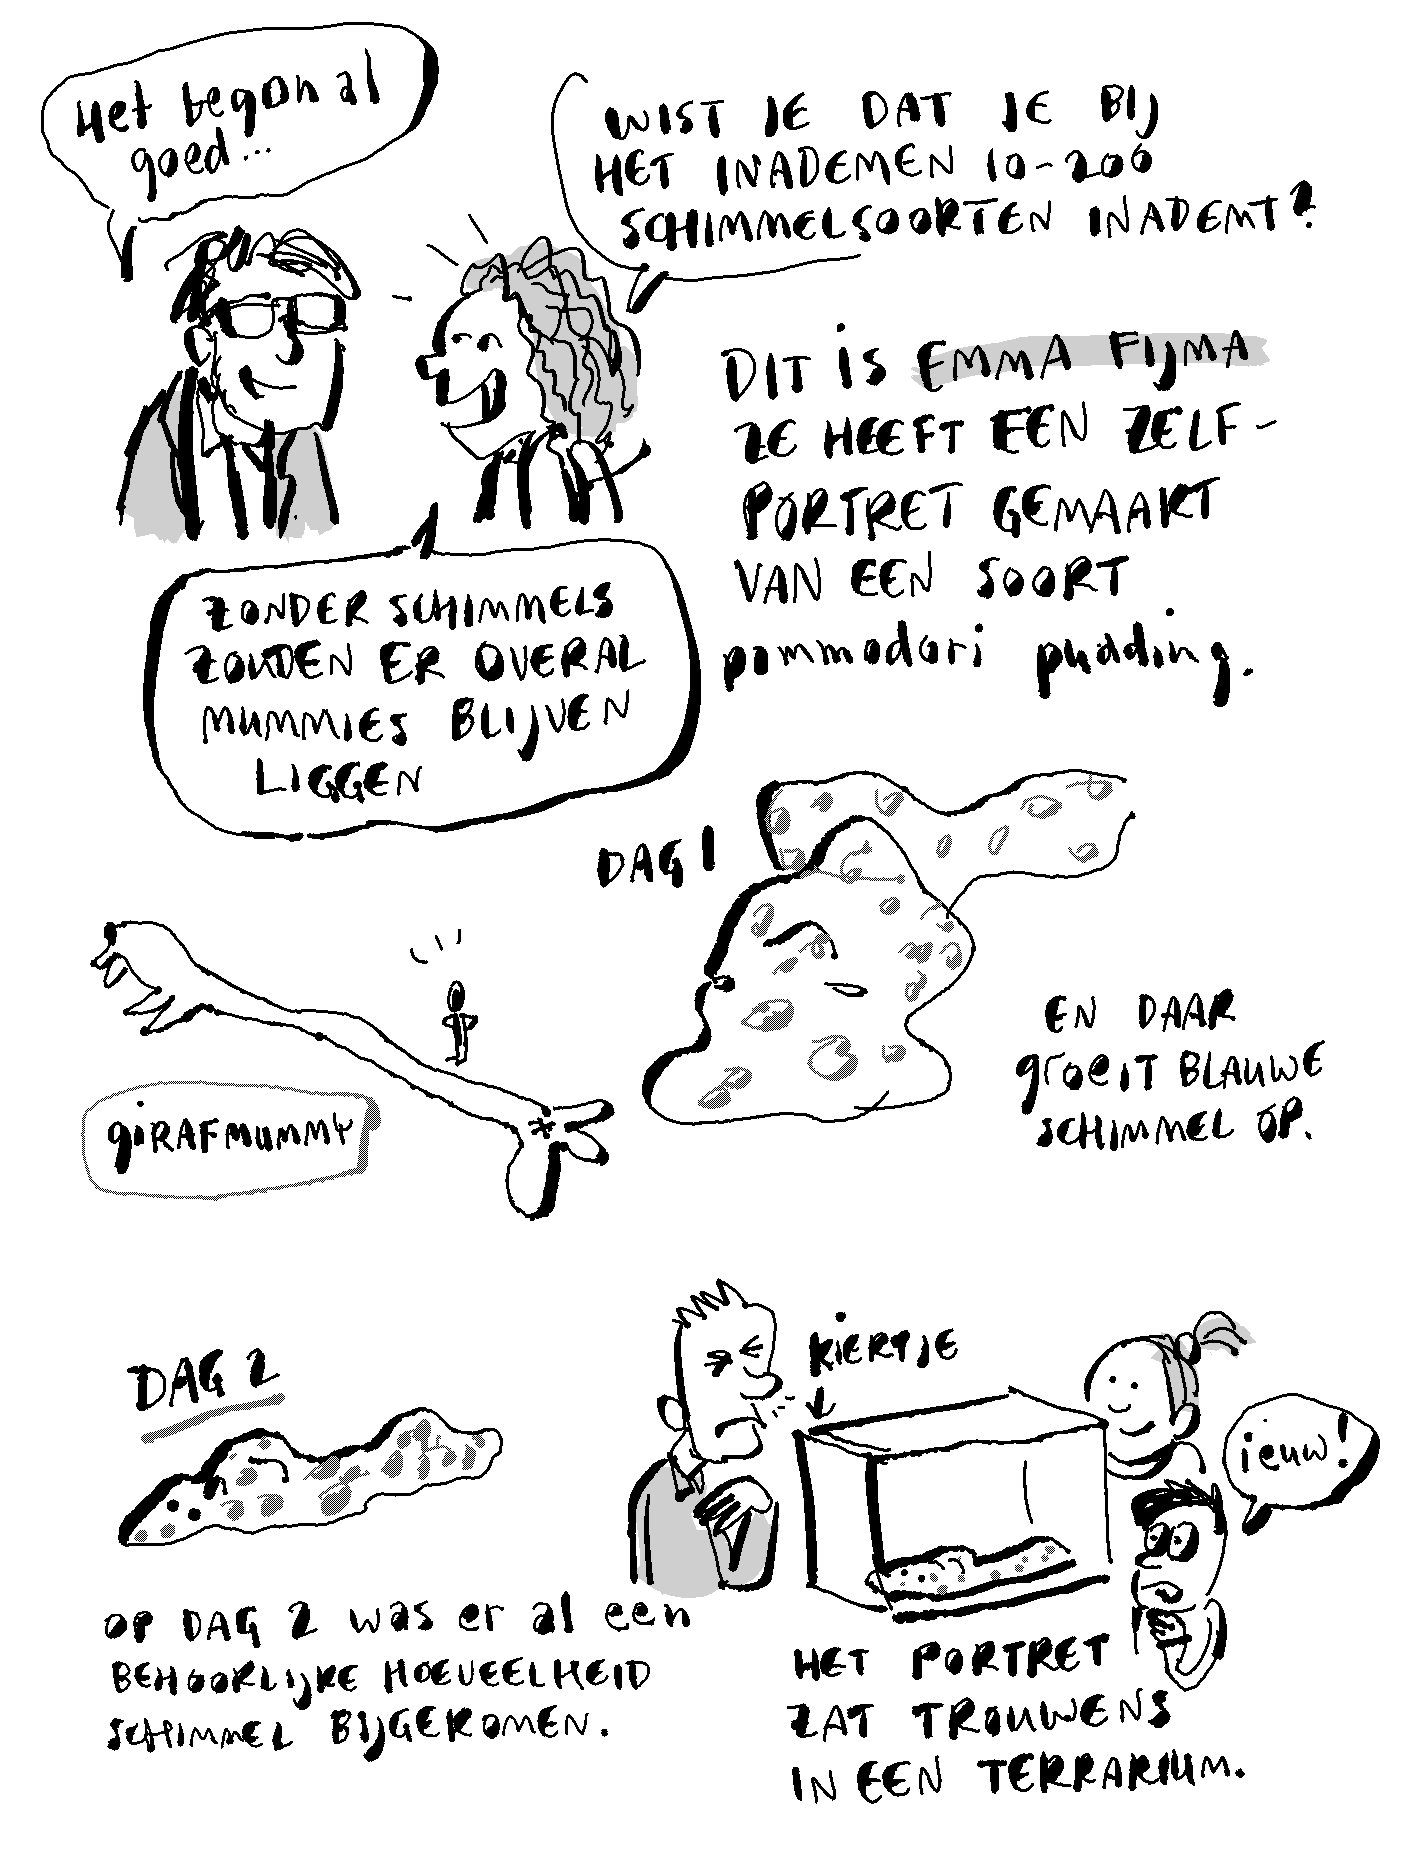 Het begon al
goed...
WIST JE DAT JE BIJ
HET INADEMEN 10-200
SCHIMMELSOORTEN INADEMT?
DIT IS EMMA FIJMA
ZE HEEFT EEN ZELF-
PORTRET GEMAAKT
VAN EEN SOORT
pommodori pudding.
ZONDER SCHIMMELS
ZOUDEN ER OVERAL
MUMMIES BLIJVEN
LIGGEN
DAG 1
GIRAFMUMMY
EN DAAR
groeit BLAUWE
SCHIMMEL OP.
DAG 2
KIERTJE
ieuw!
OP DAG 2 was er al een
BEHOORLIJKE HOEVEELHEID
SCHIMMEL BIJGEKOMEN.
HET PORTRET
ZAT TROUWENS
IN EEN TERRARIUM.